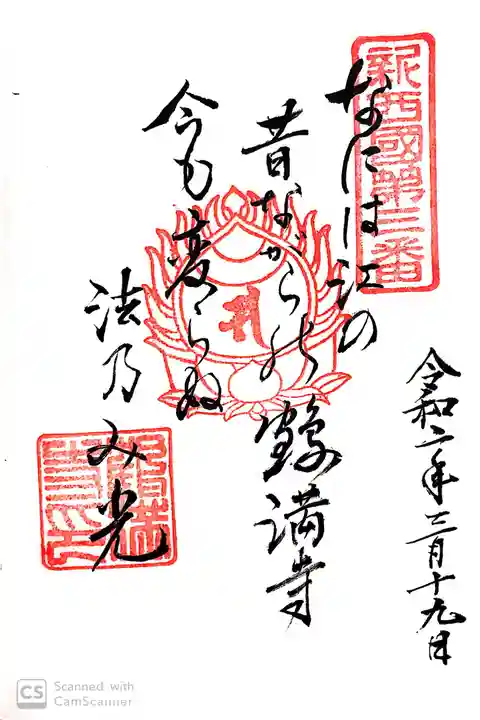 新西國第三番
なには江の
昔ながらの鶴満寺
今も変らぬ
法乃み光
令和二年三月十九日
鶴満寺印
CS Scanned with
CamScanner